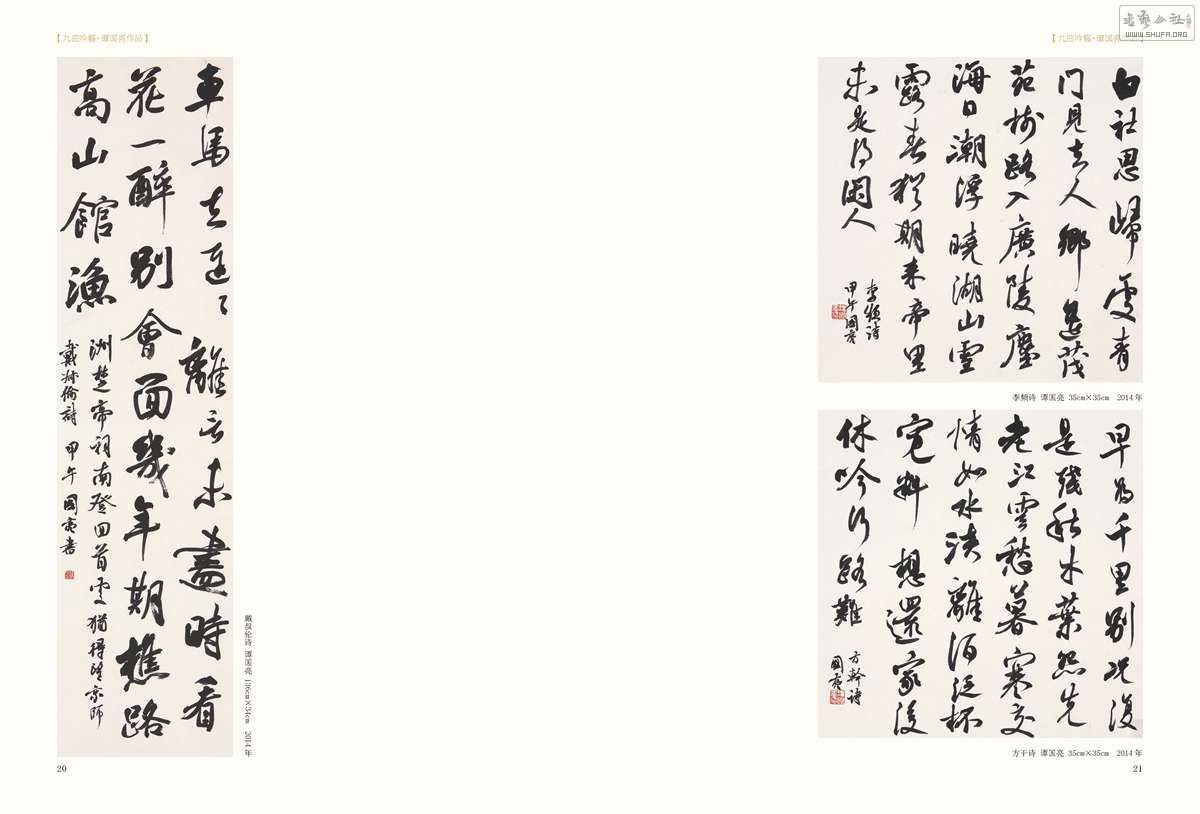 谭国亮作品】
車馬去遲〻離言未盡時看
花一醉別會面幾年期樵路
高山館漁
洲楚帝祠南登回首處猶得望京師
戴叔倫詩 甲午 國亮書
戴叔伦诗 谭国亮 136cm×34cm 2014年
20
書藝公社
WWW.SHUFA.ORG
白社思歸處青
門見去人鄉遥茂
苑樹路入廣陵塵
海日潮浮曉湖山雪
露春猶期來帝里
未是得閑人
李頻詩
甲午國亮
李频诗 谭国亮 35cm×35cm 2014年
早為千里別況復
是殘秋木葉怨先
老江雲愁暮寒交
情如水淡離酒泛杯
寬料想還家後
休吟行路難
方幹詩
國亮
方干诗 谭国亮 35cm×35cm 2014年
21